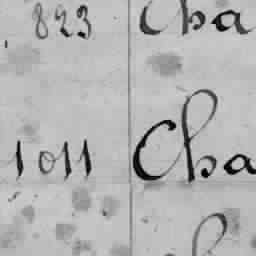 823 Cha
1011 Cha